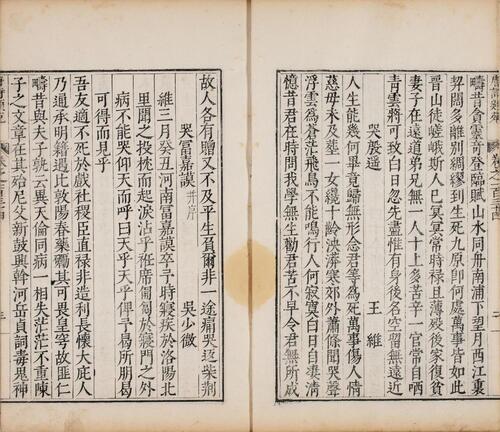 疇昔貪靈奇登臨賦山水同舟南浦下望月西江裏
契闊多離別綢繆到生死九原卽何處萬事皆如此
晉山徒嵯峨斯人已冥冥常時祿且薄殁後家復貧
妻子在遠道弟兄無一人十上多苦辛一官常自哂
青雲將可致白日忽先盡惟有身後名空留無遠近
哭殷遥 王維
人生能幾何畢竟歸無形念君等爲死萬事傷人情
慈母未及葬一女纔十齡泱漭寒郊外蕭條聞哭聲
浮雲爲蒼茫飛鳥不能鳴行人何寂寞白日自凄清
憶昔君在時問我學無生勸君苦不早令君無所成
故人各有贈又不及平生負爾非一途痛哭返柴荆
哭富嘉謨 并序 吳少微
維三月癸丑河南富嘉謨卒予時寢疾於洛陽北
里聞之投枕而起淚沾乎衽席匍匐於寢門之外
病不能哭仰天而呼曰天乎天乎俾予曷所朋曷
可得而見乎
吾友適不死於戲社稷臣直祿非造利長懷大庇人
乃通承明籍遇此敦牂春藥礪其可畏皇穹故匪仁
疇昔與夫子孰云異天倫同病一相失茫茫不重陳
子之文章在其殆尼父新鼓興幹河岳貞詞毒鬼神